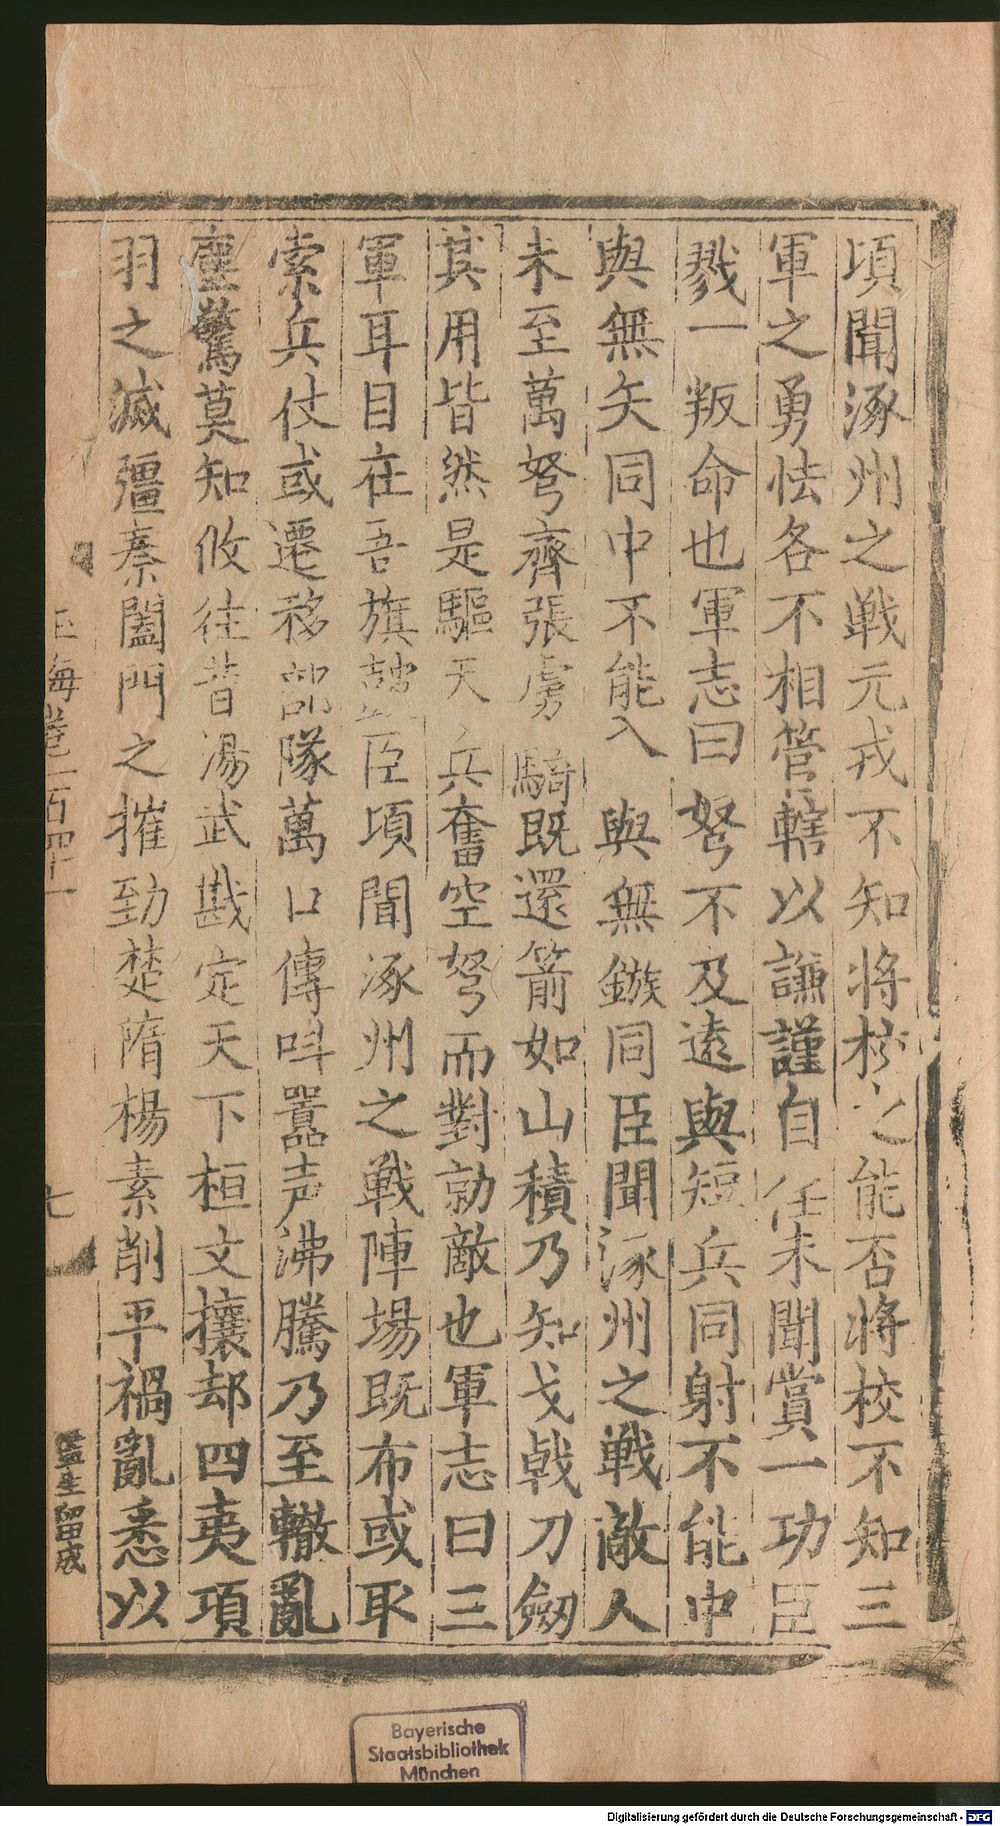 頃聞涿州之戰元戎不知將校之能否將校不知三
軍之勇怯各不相管轄以謙謹自任未聞賞一功臣
戮一叛命也軍志曰弩不及遠與短兵同射不能中
與無矢同中不能入與無鏃同臣聞涿州之戰敵人
未至萬弩齊張虜騎既還箭如山積乃知戈戟刀劒
其用皆然是驅天兵奮空弩而對勍敵也軍志曰三
軍耳目在吾旗鼓臣頃聞涿州之戰陣場既布或取
索兵仗或遷移部隊萬口傳呌囂声沸騰乃至轍亂
塵驚莫知攸往昔湯武戡定天下桓文攘却四夷項
羽之滅彊秦闔門之摧勁楚隋楊素削平禍亂悉以
玉海卷一百四十一
七
監生留成
Bayerische
Staatsbibliothek
München
Digitalisierung gefördert durch die Deutsche Forschungsgemeinschaft - DFG